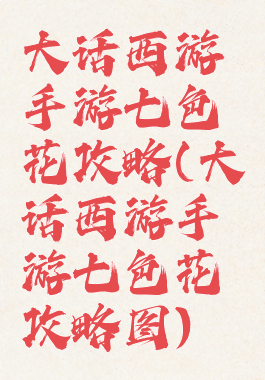 大话西游
手游七色
花攻略(大
话西游手
游七色花
攻略图)